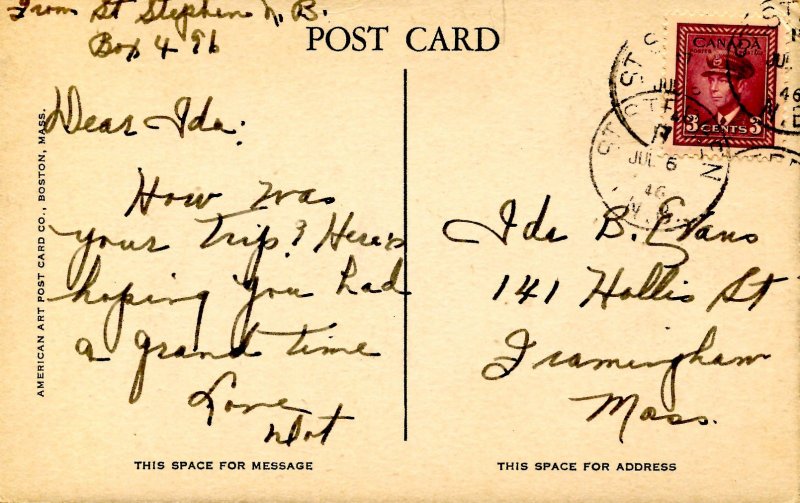 From St Stephen N. B.
Box 496
POST CARD
CANADA
3 CENTS 3
ST. STEPHEN
17
JUL 6
46
N. B.
AMERICAN ART POST CARD CO., BOSTON, MASS.
Dear Ida:
How was
your trip? Here's
hoping you had
a grand time
Love
Dot
Ida B. Evans
141 Hollis St
Framingham
Mass.
THIS SPACE FOR MESSAGE
THIS SPACE FOR ADDRESS